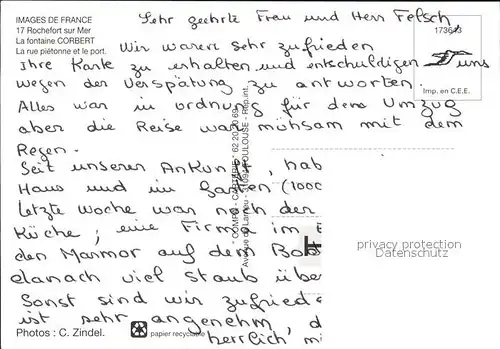 IMAGES DE FRANCE
17 Rochefort sur Mer
La fontaine CORBERT
La rue piétonne et le port.
173643
Imp. en C.E.E.
Sehr geehrte Frau und Herr Felsch
Wir waren sehr zufrieden
Ihre Karte zu erhalten und entschuldigen uns
wegen der Verspätung zu antworten.
Alles war in ordnung für dem Umzug
aber die Reise war mühsam mit dem
Regen.
Seit unserer Ankunft, hab
Haus und im Garten (1000
letzte Woche war noch der
Küche; eine Firma im E
den Marmor auf dem Bod
danach viel Staub übe
Sonst sind wir zufried
ist sehr angenehm, d
herrlich mi
privacy protection
Datenschutz
Photos : C. Zindel.
papier recyclable